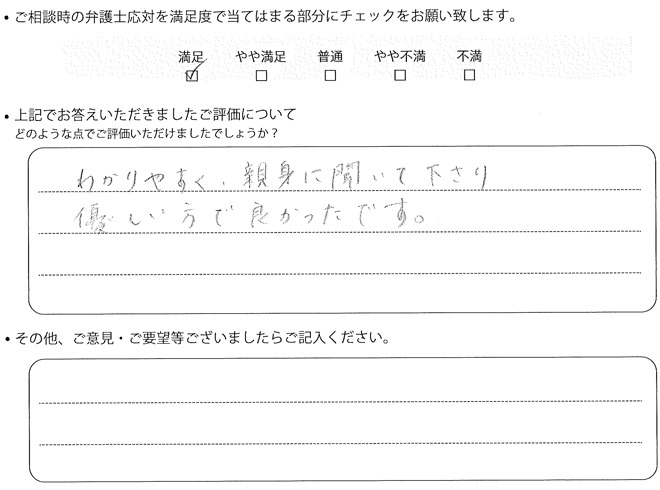 • ご相談時の弁護士応対を満足度で当てはまる部分にチェックをお願い致します。
満足 やや満足 普通 やや不満 不満
☑ □ □ □ □
• 上記でお答えいただきましたご評価について
どのような点でご評価いただけましたでしょうか？
わかりやすく、親身に聞いて下さり
優しい方で良かったです。
• その他、ご意見・ご要望等ございましたらご記入ください。